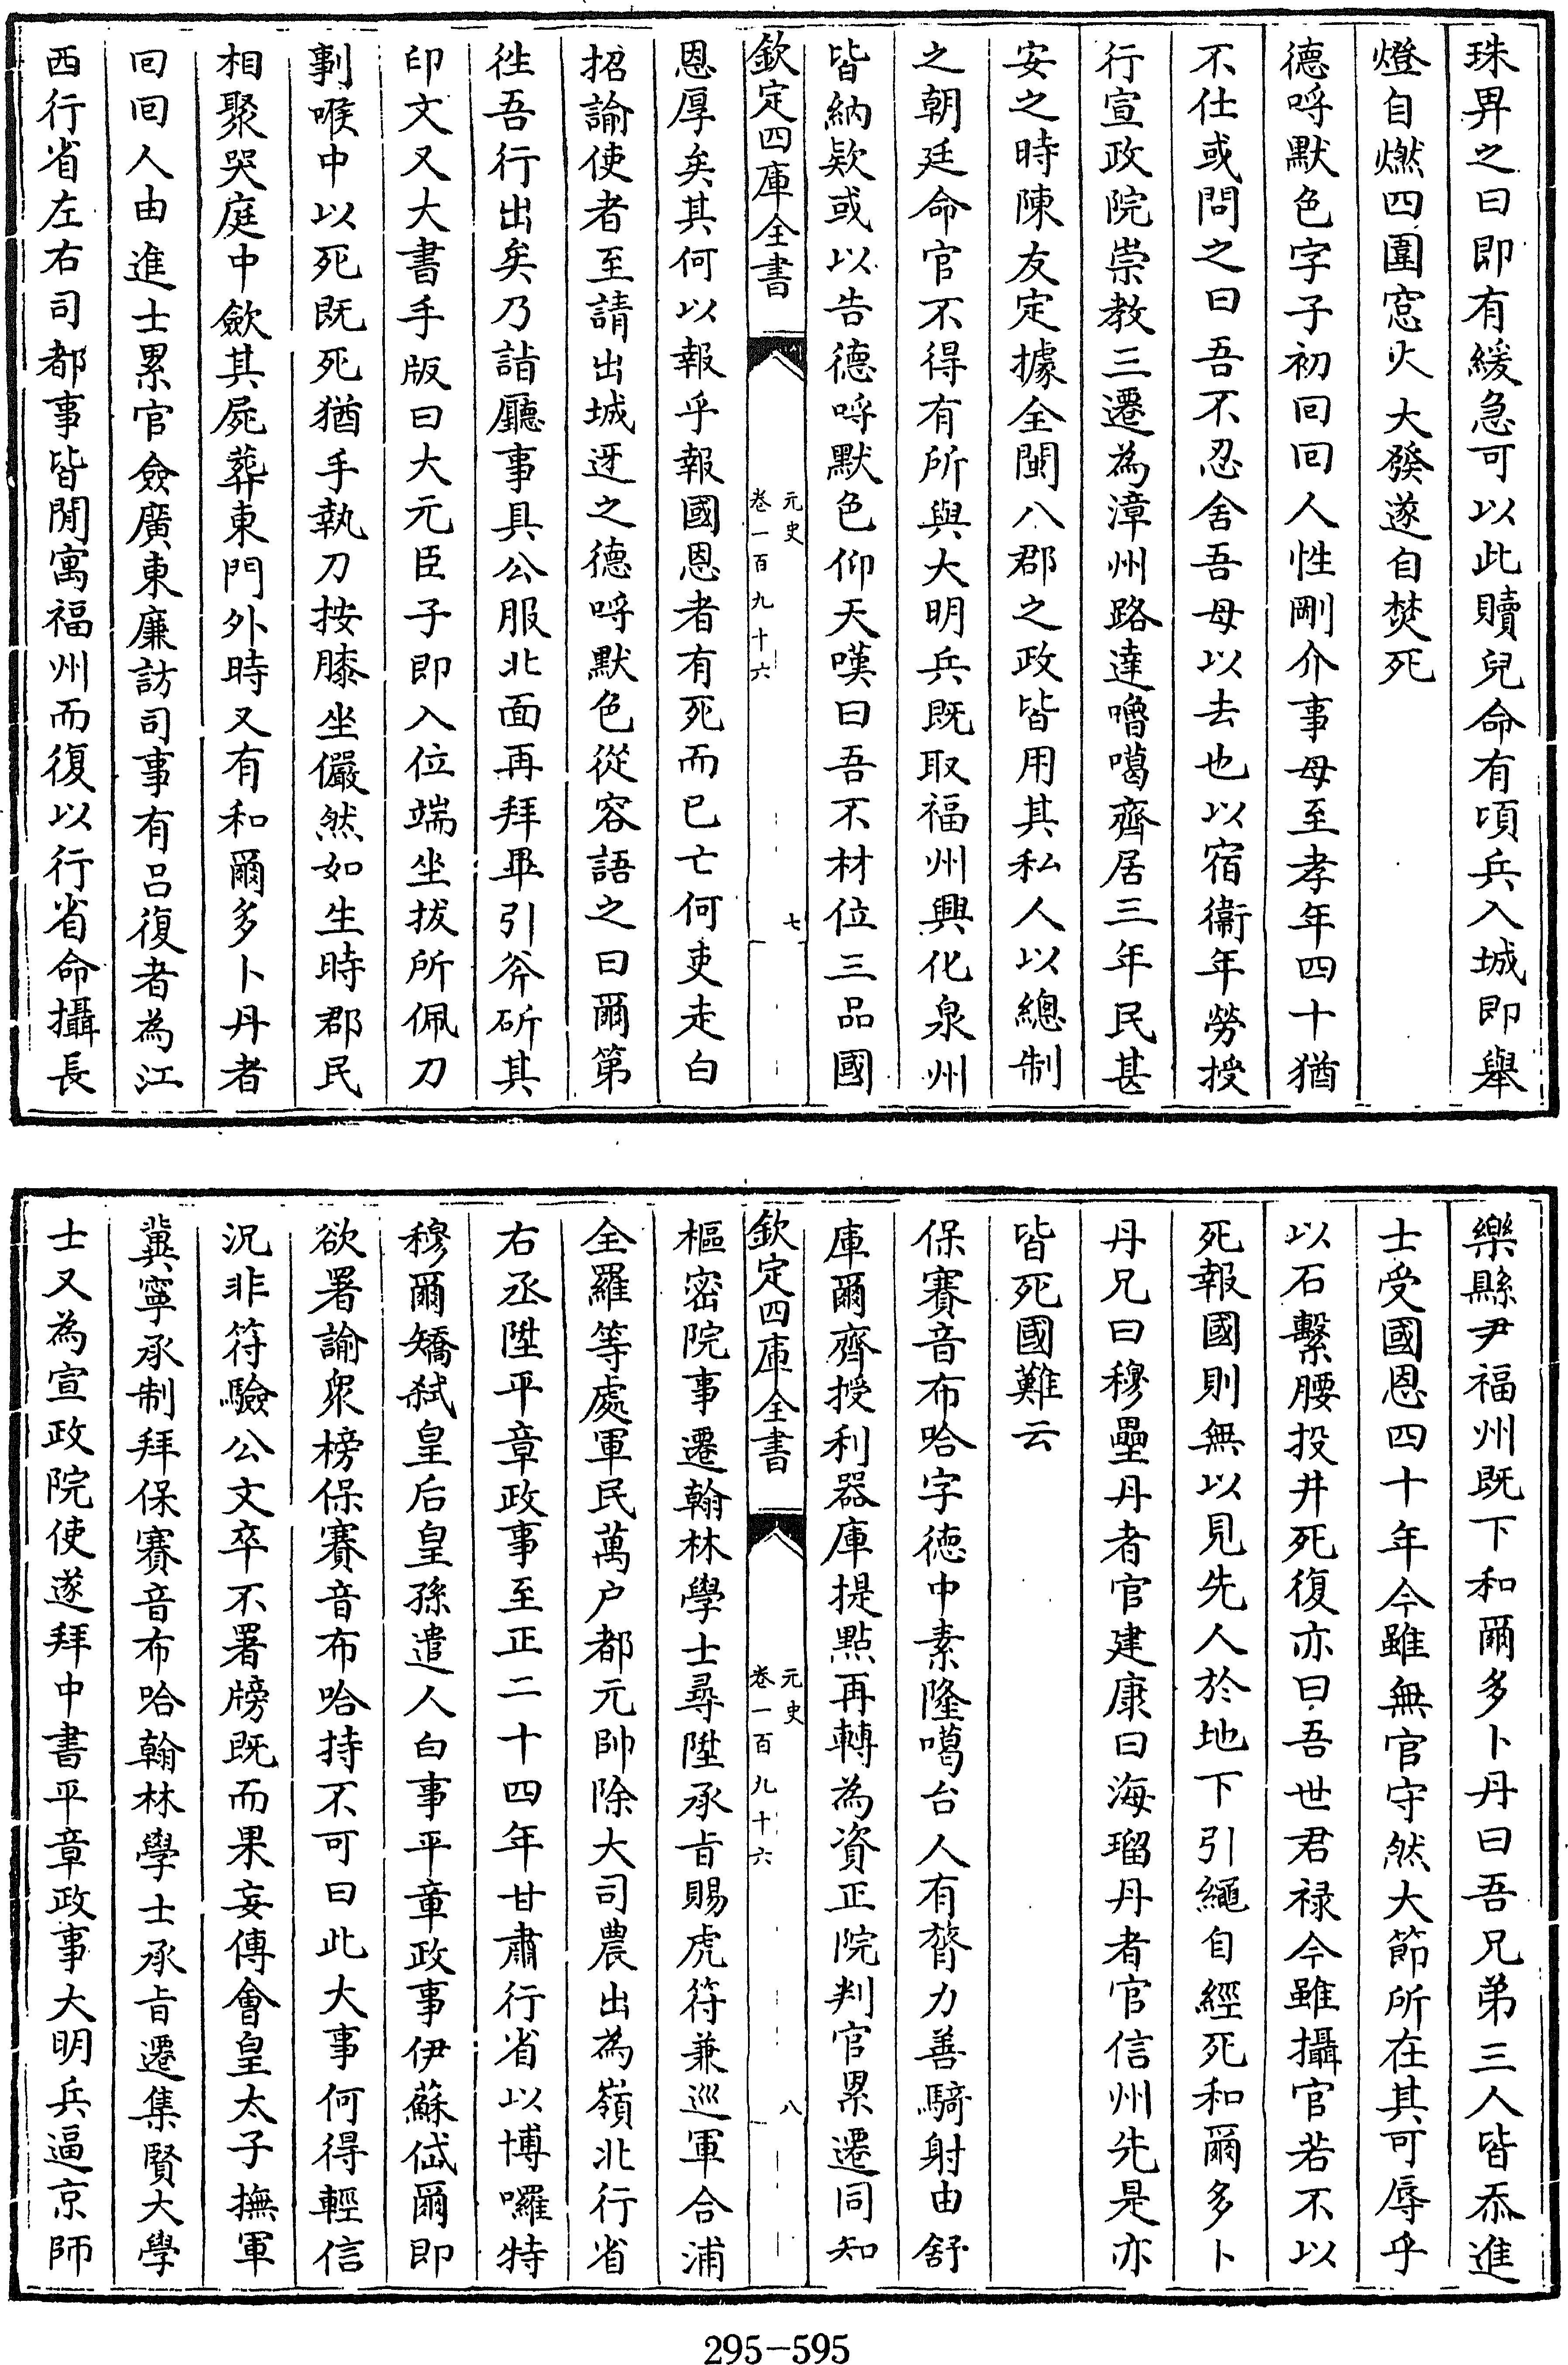 珠畀之曰即有緩急可以此贖兒命有頃兵入城即舉
燈自燃四圍窓火大發遂自焚死
德呼默色字子初回回人性剛介事母至孝年四十猶
不仕或問之曰吾不忍舍吾母以去也以宿衞年勞授
行宣政院崇教三遷為漳州路達嚕噶齊居三年民甚
安之時陳友定據全閩八郡之政皆用其私人以總制
之朝廷命官不得有所與大明兵既取福州興化泉州
皆納欵或以告德呼默色仰天嘆曰吾不材位三品國
欽定四庫全書
元史
卷一百九十六
七
恩厚矣其何以報乎報國恩者有死而已亡何吏走白
招諭使者至請出城迓之德呼默色從容語之曰爾第
徃吾行出矣乃詣廳事具公服北面再拜畢引斧斫其
印文又大書手版曰大元臣子即入位端坐拔所佩刀
剚喉中以死既死猶手執刀按膝坐儼然如生時郡民
相聚哭庭中歛其屍葬東門外時又有和爾多卜丹者
回回人由進士累官僉廣東廉訪司事有呂復者為江
西行省左右司都事皆閒寓福州而復以行省命攝長
樂縣尹福州既下和爾多卜丹曰吾兄弟三人皆忝進
士受國恩四十年今雖無官守然大節所在其可辱乎
以石繫腰投井死復亦曰吾世君禄今雖攝官若不以
死報國則無以見先人於地下引繩自經死和爾多卜
丹兄曰穆壘丹者官建康曰海瑠丹者官信州先是亦
皆死國難云
保賽音布哈字德中素隆噶台人有膂力善騎射由舒
庫爾齊授利器庫提點再轉為資正院判官累遷同知
欽定四庫全書
元史
卷一百九十六
八
樞密院事遷翰林學士尋陞承旨賜虎符兼巡軍合浦
全羅等處軍民萬户都元帥除大司農出為嶺北行省
右丞陞平章政事至正二十四年甘肅行省以博囉特
穆爾矯弑皇后皇孫遣人白事平章政事伊蘇岱爾即
欲署諭衆榜保賽音布哈持不可曰此大事何得輕信
況非符驗公文卒不署牓既而果妄傳會皇太子撫軍
冀寧承制拜保賽音布哈翰林學士承旨遷集賢大學
士又為宣政院使遂拜中書平章政事大明兵逼京師
295-595